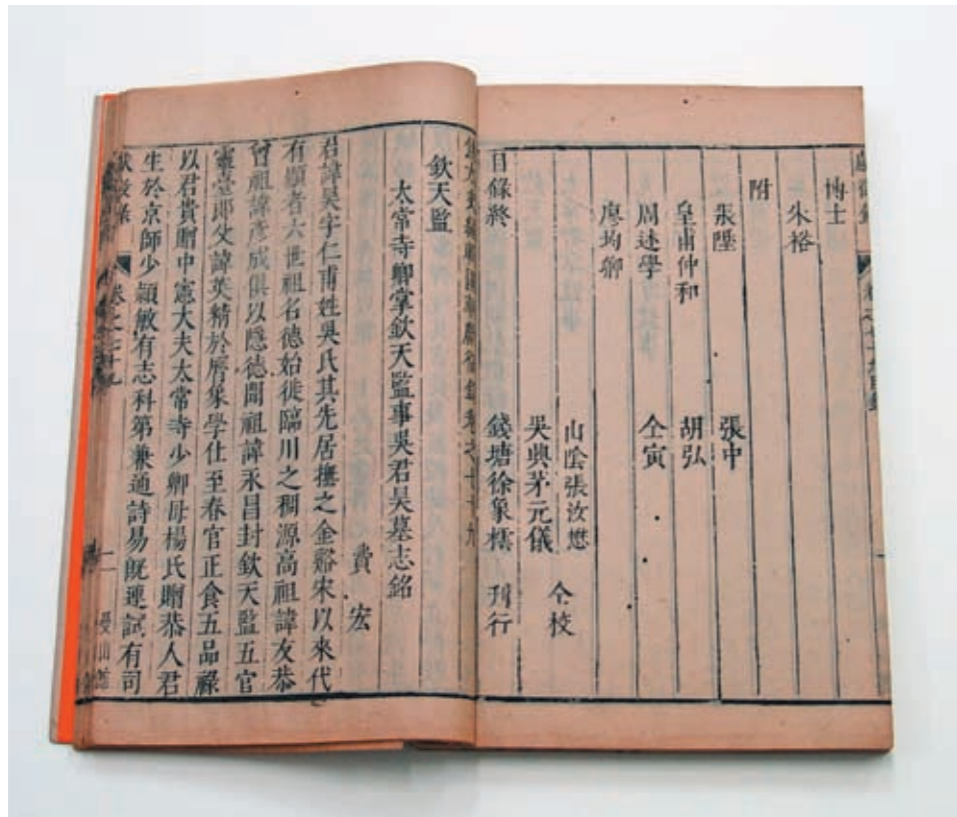 博士
朱裕
附
張陞 張中
皇甫仲和 胡弘
周述學 仝寅
廖均卿
山陰張汝懋
仝校
吳興茅元儀
錢塘徐象橒 刊行
目錄終
國朝獻徵錄卷之七十九
欽天監
太常寺卿掌欽天監事吳君昊墓志銘
費宏
君諱昊字仁甫姓吳氏其先居撫之金谿宋以來代
有顯者六世祖名德始徙臨川之稠源高祖諱友恭
曾祖諱彥成俱以隱德聞祖諱永昌封欽天監五官
靈臺郎父諱英精於曆象學仕至春官正食五品祿
以君貴贈中憲大夫太常寺少卿母楊氏贈恭人君
生於京師少穎敏有志科第兼通詩易既連試有司
獻徵錄 卷之七十九 一 曼山館